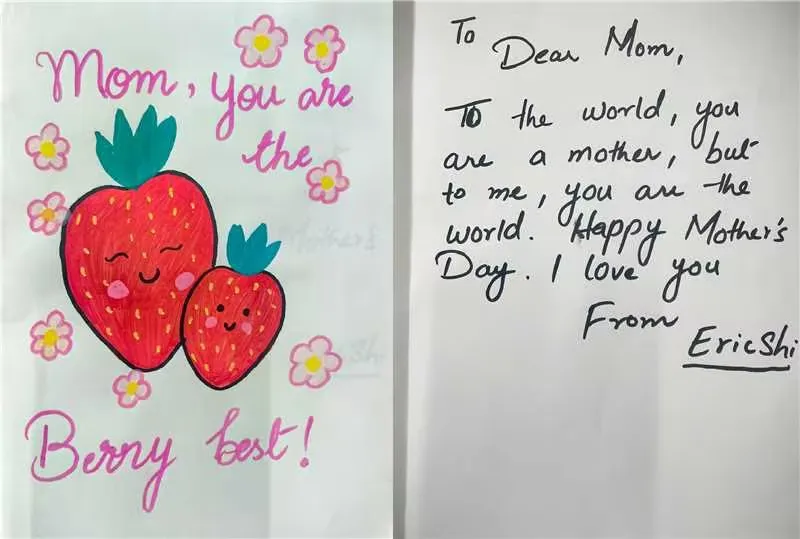 Mom, you are
the
Berry best!
To
Dear Mom,
To the world, you
are a mother, but
to me, you are the
world. Happy Mother's
Day. I love you
From
Eric Shi